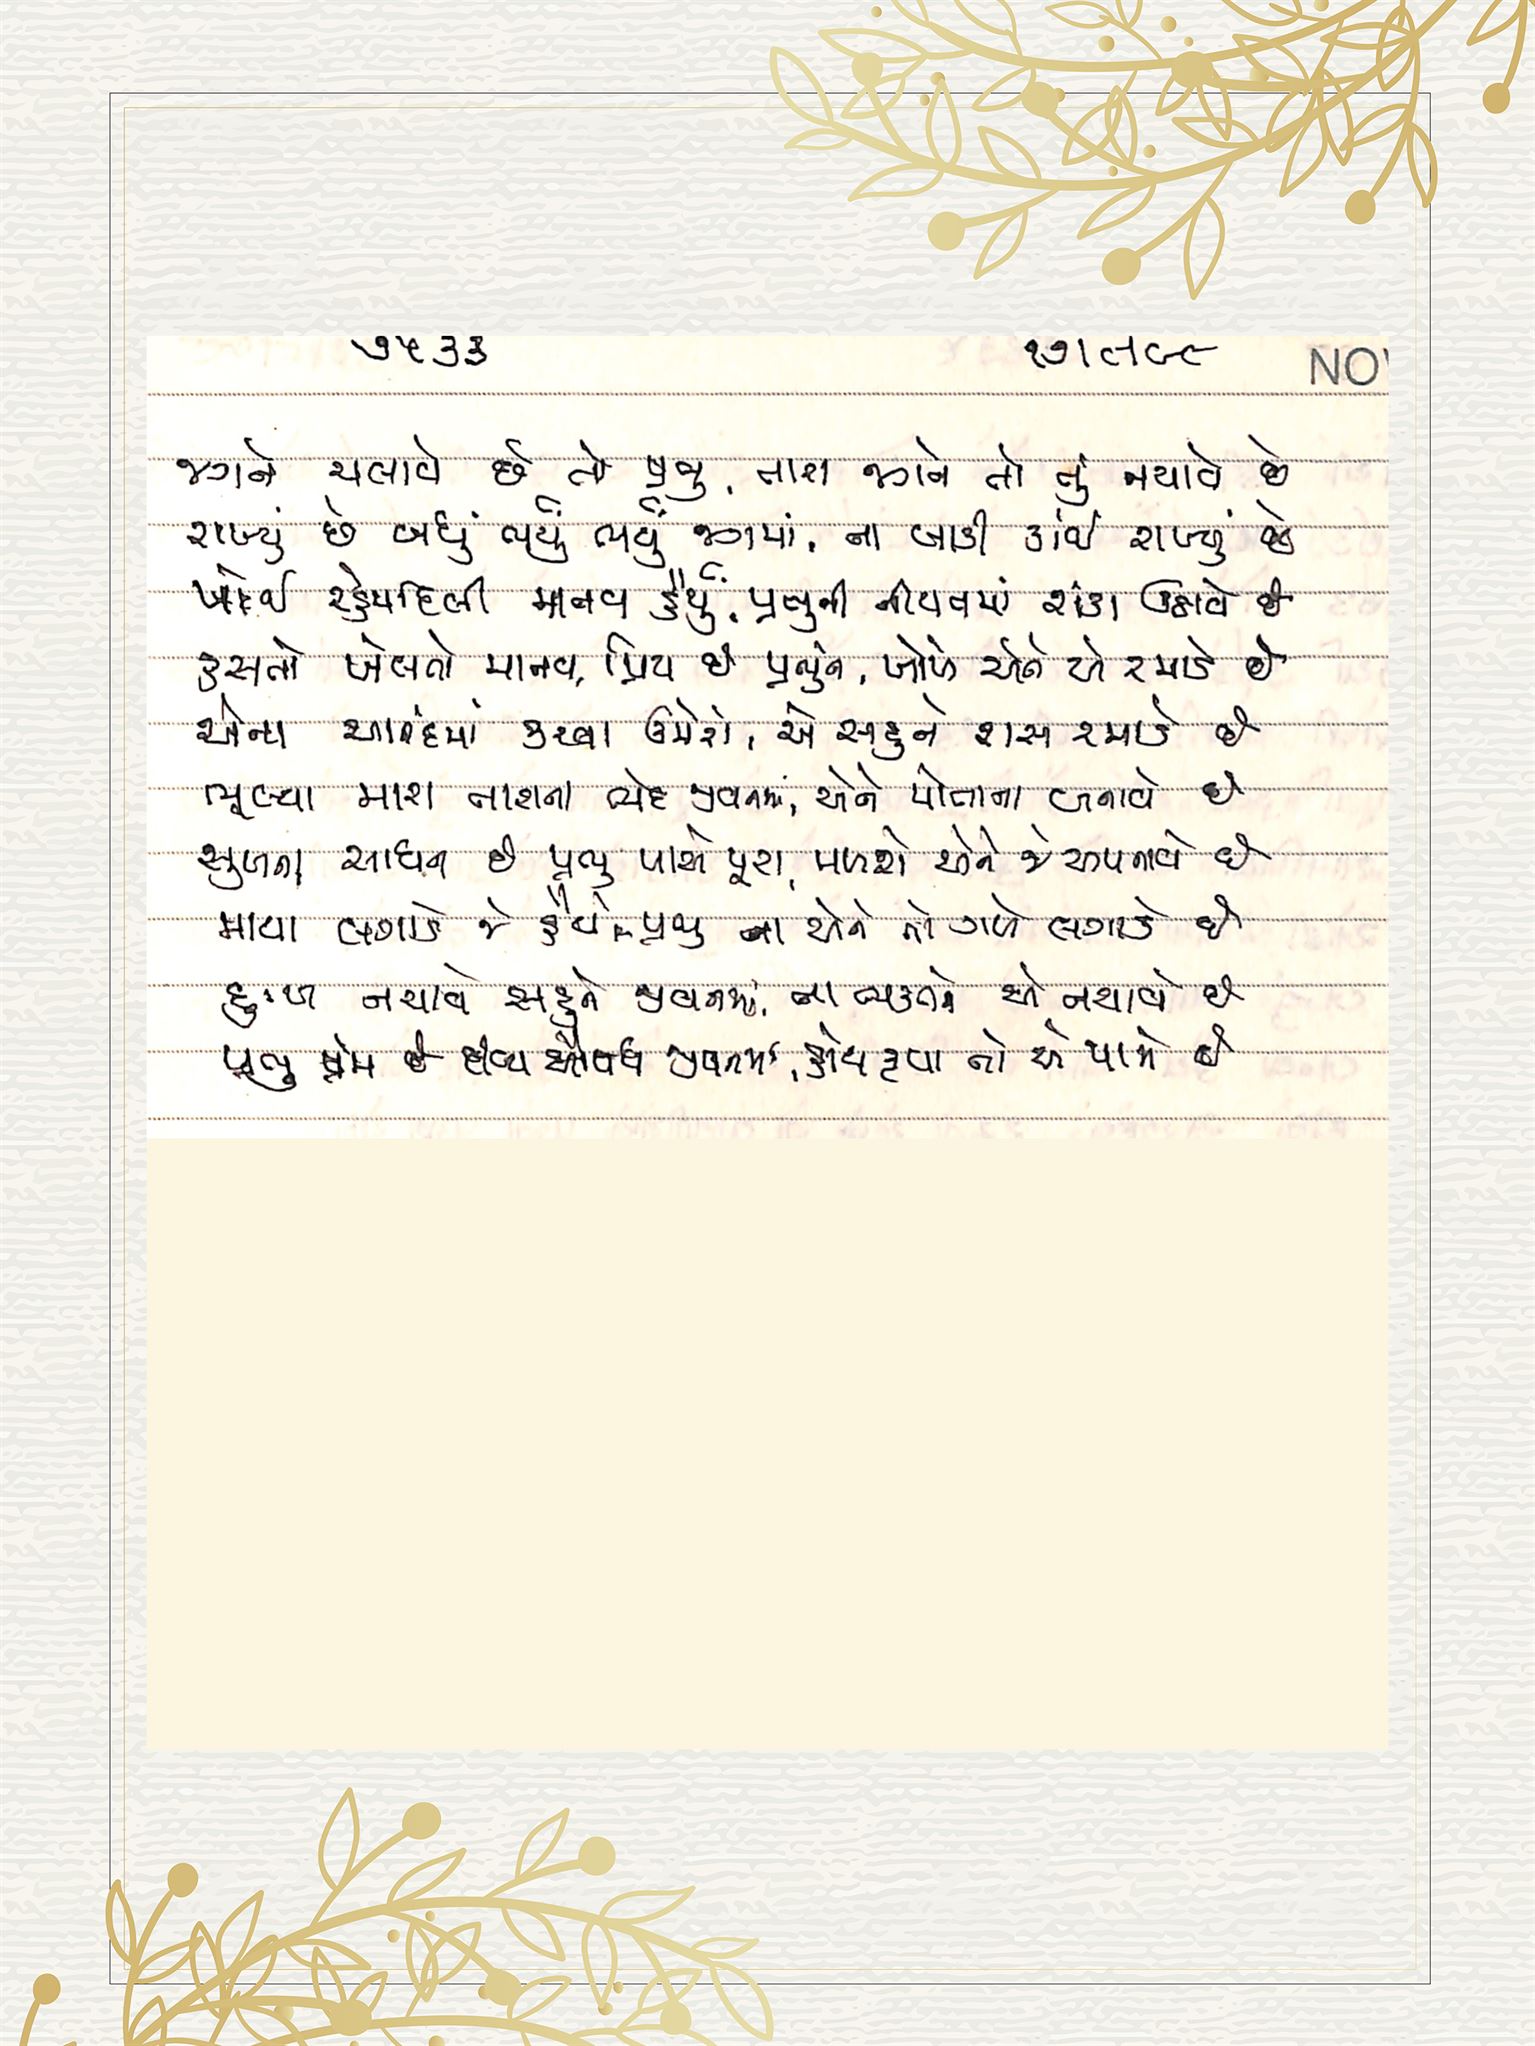 ૭૫૩૩
૧૭। ૯૮૯
NO
જગને ચલાવે છે તો પ્રભુ, તારા જગને તો તું નચાવે છે
રાખ્યું છે બધું ભર્યું ભર્યું જગમાં, ના બાકી કાંઈ રાખ્યું છે
ખોઈ રહેમદિલી માનવ હૈયું, પ્રભુની નીયતમાં શંકા ઉઠાવે છે
હસતો ખેલતો માનવ, પ્રિય છે પ્રભુને, ખોળે એને એ રમાડે છે
એના આનંદમાં કરવા ઉમેરો, એ સહુને રાસ રમાડે છે
ભૂલ્યા મારા તારાના ભેદ જીવનમાં, એને પોતાના બનાવે છે
સુખના સાધન છે પ્રભુ પાસે પૂરા, મળશે એને જે અપનાવે છે
માયા લગાડે જે હૈયે પ્રભુ ના એને તો ગળે લગાડે છે
દુઃખ નચાવે સહુને જીવનમાં, ના ભક્તને એ નચાવે છે
પ્રભુ પ્રેમ છે દિવ્ય ઔષધ જીવનમાં, હોય કૃપા તો એ પામે છે